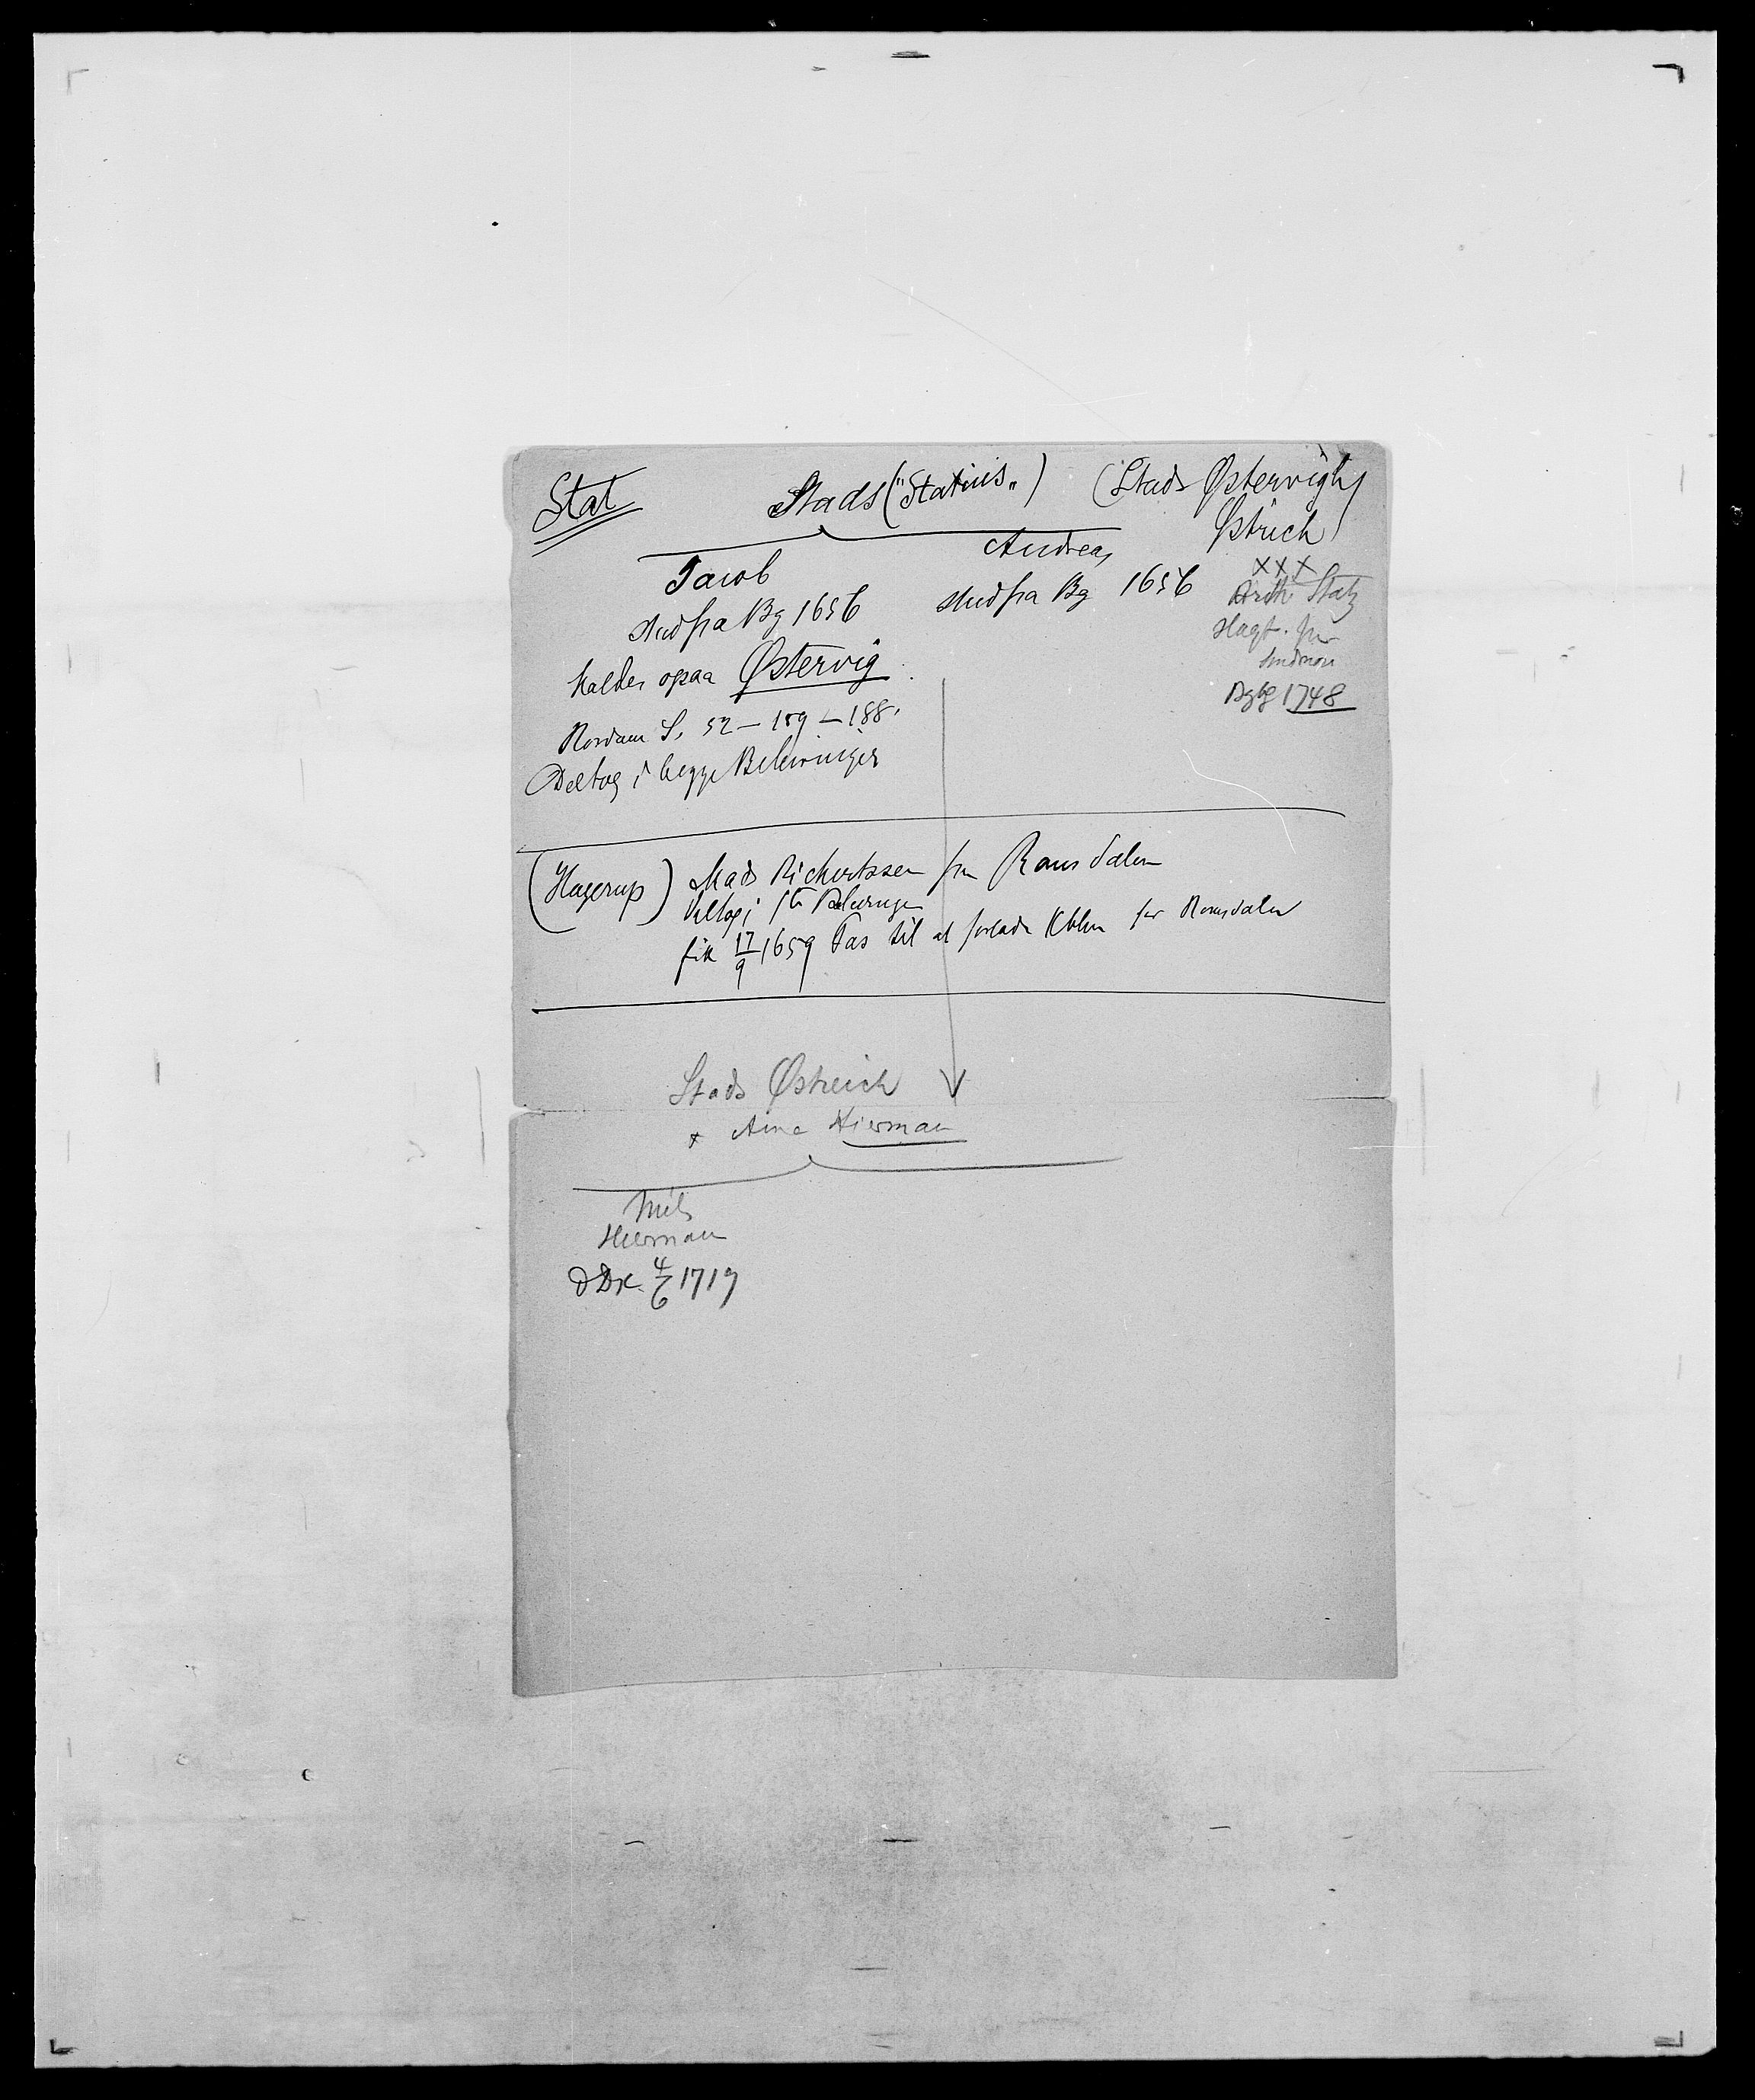 Stat
Stads ("Statius„) (Stads Østervigh
Østrich)
Jacob
stud fra Bg 1656
kaldes ogsaa Østervig
Rørdam S. 52 – 159 – 188.
Deltog i begge Beleiringer
Andreas
stud fra Bg 1656
XXX
Statz
Slagt. fra
Bgbg 1748
(Hagerup) Mads Richertssen fra Romsdalen
Deltog i Beleiringen
fik 17/9 1659 Pas til at forlade Kbhn for Romsdalen
Stads Østreich
x Anne Hierman
Niels
Hierman
d Dk. 4/6 1719